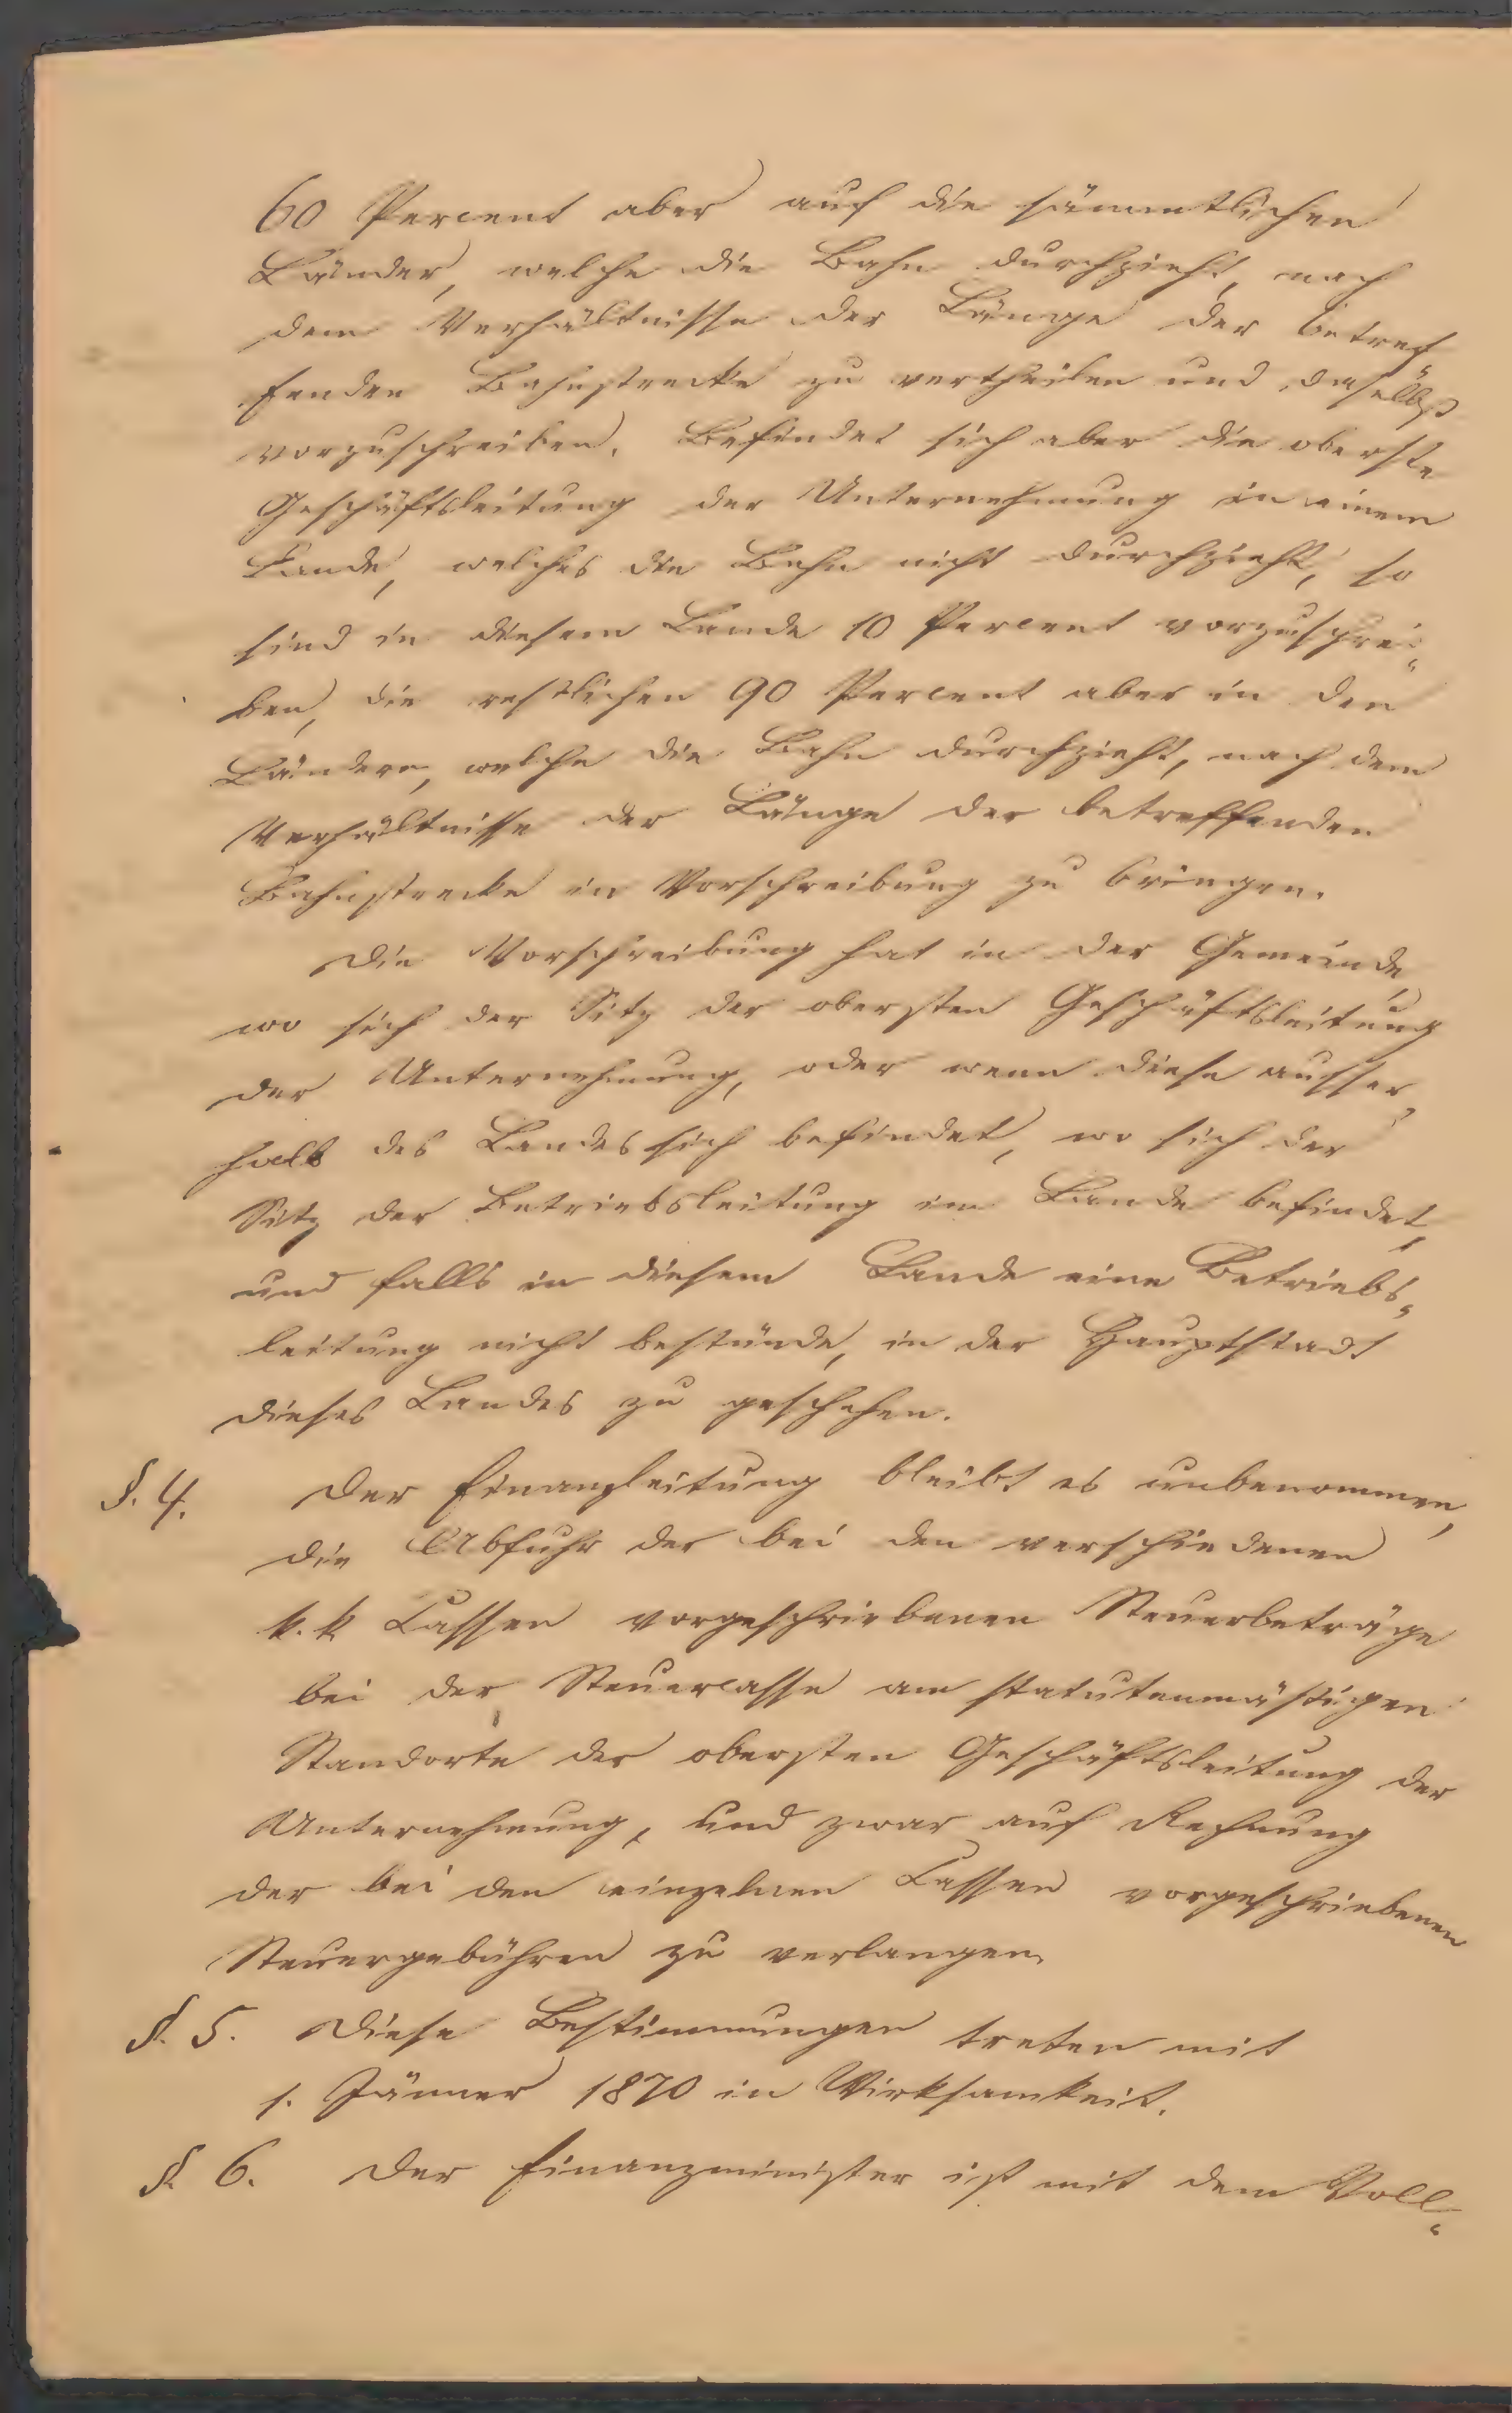 60 Percent aber auf die sämmtlichen
Länder, welche die Bahn durchzieht, nach
dem Verhältnisse der Länge der betref
fenden Bahnstrecke zu vertheilen und daselbst
vorzuschreiben. Befindet sich aber die oberste
Geschäftsleitung der Unternehmung in einem
Lande, welches die Bahn nicht durchzieht, so
sind in diesem Lande 10 Percent vorzuschrei„
ben, die restlichen 90 Percent aber in den
Ländern, welche die Bahn durchzieht, nach dem
Verhältnisse der Länge der betreffenden
Bahnstrecke in Vorschreibung zu bringen.
Die Vorschreibung hat in der Gemeinde,
wo sich der Sitz der obersten Geschäftsleitung
der Unternehmung, oder wenn diese ausser„
halb des Landes sich befindet, wo sich der
Sitz der Betriebsleitung im Lande befindet,
und falls in diesem Lande eine Betriebs„
leitung nicht bestünde, in der Hauptstadt
dieses Landes zu geschehen.
§. 4. Der Finanzleitung bleibt es unbenommen,
die Abfuhr der bei den verschiedenen
k. k Cassen vorgeschriebenen Steuerbeträge
bei der Steuercasse am statutenmäßigen
Standorte der obersten Geschäftsleitung der
Unternehmung, und zwar auf Rechnung
der bei den einzelnen Cassen vorgeschriebenen
Steuergebühren zu verlangen.
§. 5. Diese Bestimmungen treten mit
1. Jänner 1870 in Wirksamkeit.
§. 6. Der Finanzminister ist mit dem Voll„